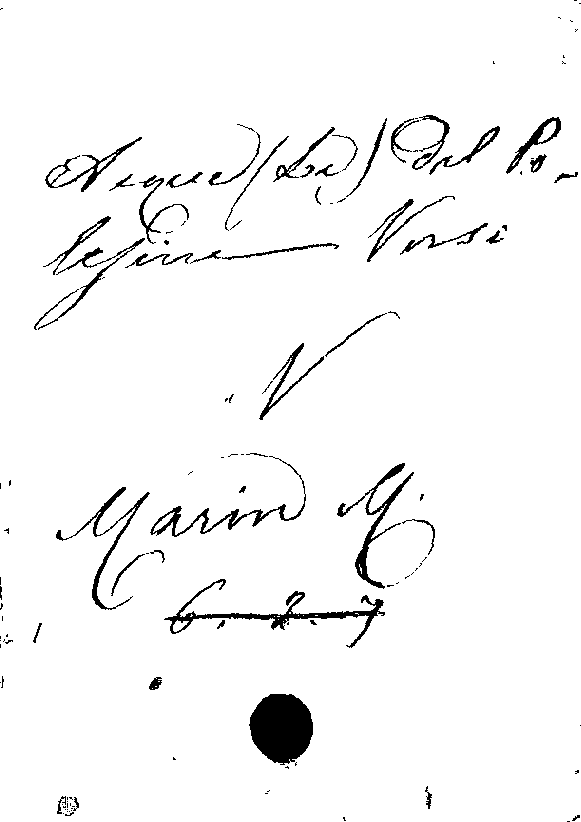 Acque (Le) del Po-
lesine Versi
V
Marin M.
6. 2. 7